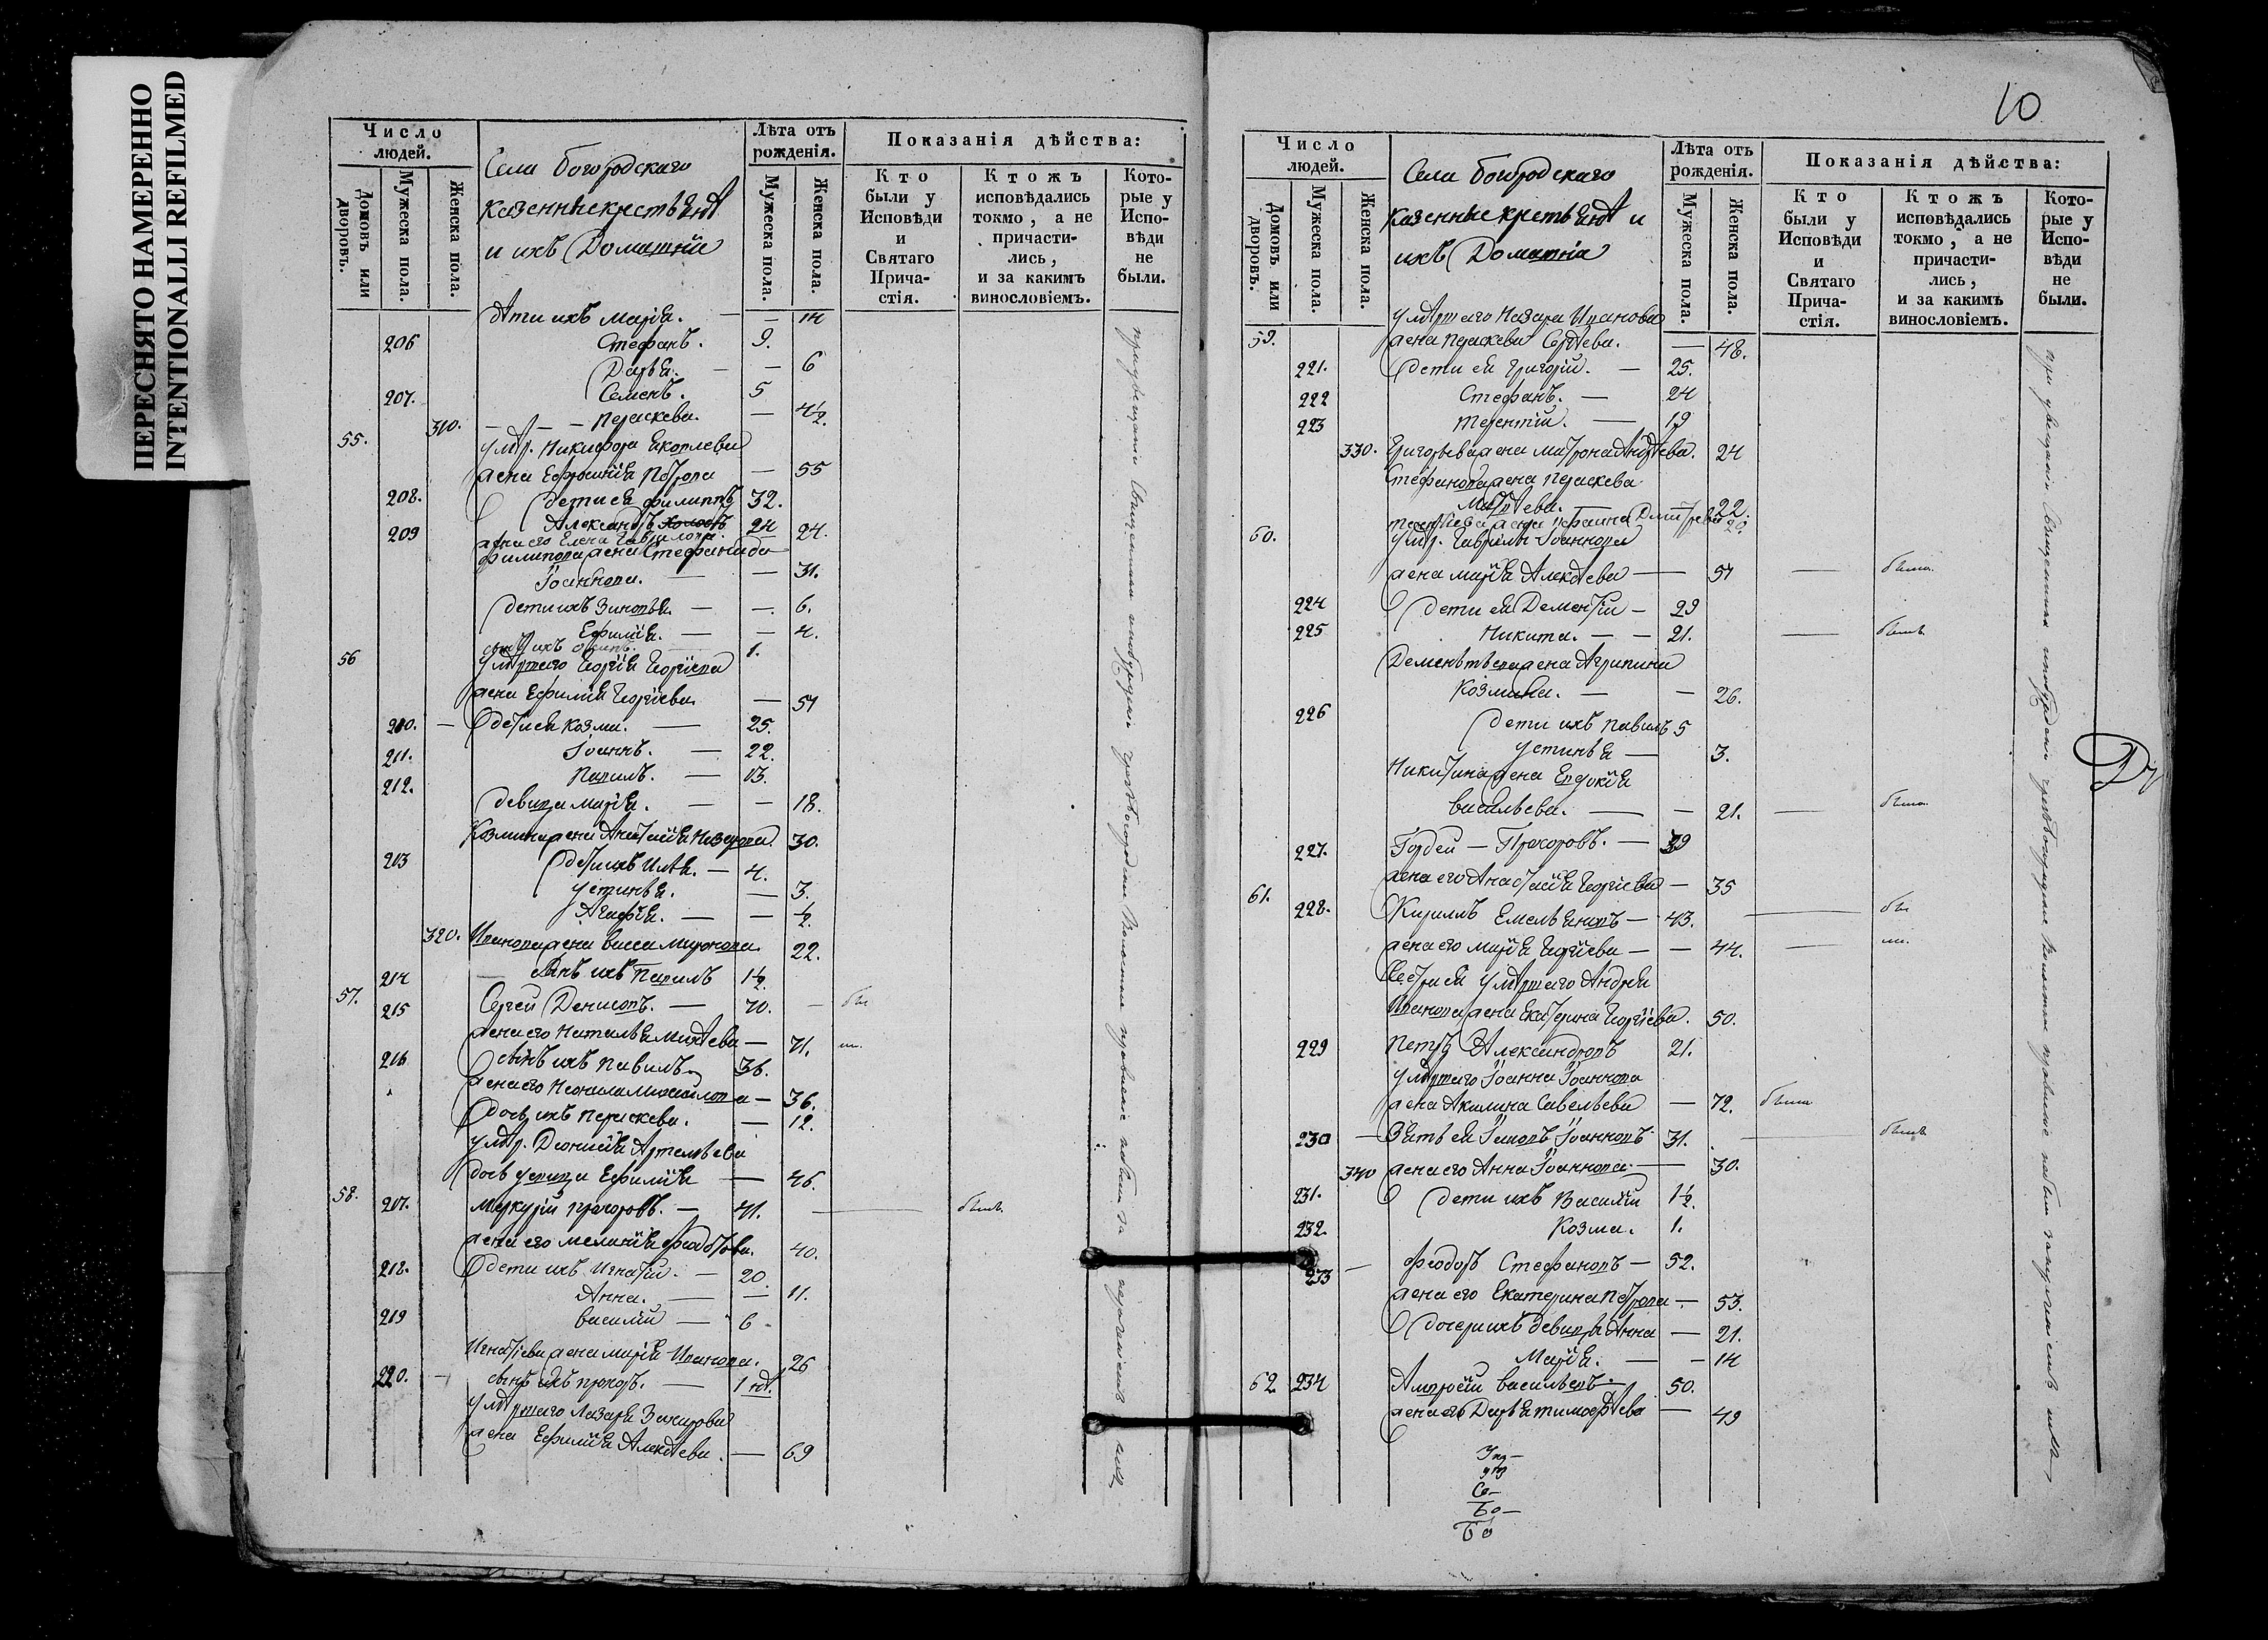 ПЕРЕСНЯТО НАМЕРЕННО
INTENTIONALLI REFILMED
Число людей.
Домовъ или дворовъ.
Мужеска пола.
Женска пола.
Села Богородскаго
казенные
и ихъ Домашніи
Лѣта отъ рожденія.
Мужеска пола.
Женска пола.
Показанія дѣйства:
Кто были у Исповѣди и Святаго Прича-стія.
Ктожъ исповѣдались токмо, а не причасти-лись, и за какимъ винословіемъ.
Кото-рые у Испо-вѣди не были.
Дѣти ихъ Марія. — — 14
206 Стефанъ. 9.
Дарья. — — 6
207. Семенъ. 5
310. — — — Параскева. — 4½
55. умер. Никифора Яковлева
жена Ефросинія Петрова — 55
208. дети ея Филиппъ 32.
209 Александръ холостъ 24 24.
жена его Елена Гаврилова.
Филипова жена Стефанида
Іоаннова. — — 31.
дети ихъ Зиновья. — — 6.
Ефимія. — — 4.
сынъ ихъ 1.
56 умершаго Георгія Георгіева
жена Ефимія Георгіева — 51
210. — дети ея Козма. — 25.
211. Іоаннъ. — 22.
212. Павилъ. — 13.
девица Марія. — — 18.
Козмина жена Анастасія Назарова. 30.
213 дети ихъ Илья. — 4.
Устинья. — 3.
Агафья. — — ½.
320. Иванова жена Васса Миронова. 22.
214 — сынъ ихъ Павилъ 1½.
57. 215 Сергей Денисовъ. — 70. — бы
жена его Наталья Матвеева — 71. ли.
216 сынъ ихъ Павилъ 36.
жена его Неонила Михайлова — 36.
дочь ихъ Параскева. — 12.
умер. Діонисія Артемьева
дочь девица Ефимія — 46.
58. 217. Меркурій Прохоровъ. — 41. — былъ
жена его Меланія Федотова. 40.
218. дети ихъ Игнатій. — 20.
Анна. — — 11.
219 Василій — 6
Игнатіева жена Марія Иванова. 26
220. — сынъ ихъ Прохоръ. — 1 нд.
умершаго Лазаря Захарова
жена Ефимія Алексѣева. — 69
10
Число людей.
Домовъ или дворовъ.
Мужеска пола.
Женска пола.
Села Богородскаго
казенные и
ихъ Домашніи
Лѣта отъ рожденія.
Мужеска пола.
Женска пола.
Показанія дѣйства:
Кто были у Исповѣди и Святаго Прича-стія.
Ктожъ исповѣдались токмо, а не причасти-лись, и за какимъ винословіемъ.
Кото-рые у Испо-вѣди не были.
умершаго Назара Иванова
59. жена Параскева Сергѣева. — 48.
221. дети ея Григорій. — 25.
222 Стефанъ. — 24
223 Терентій. — 19
330. Григорьева жена Матрона Андрѣева. 24
Стефанова жена Параскева
Матвѣева. — — 22.
Терентіева жена Дмитріева 20.
60. умер. Гаврилы Іоаннова
жена Марія Алексѣева — 51 — была.
224 дети ея Дементій — 29
225 Никита. — — 21. — былъ
Дементьева жена Агрипина
Козмина. — — 26.
226 дети ихъ Павилъ 5
Устинья — 3.
Никитина жена Евдокія
Васильева. — — 21. — была
227. Гордей — Прохоровъ. — 39
жена его Анастасія Георгіева — 35
61. 228. Кириллъ Емельяновъ — 43. — бы
жена его Марія Георгіева — — 44. — ли.
Сестра ея умершаго Андрея
Иванова жена Екатерина Георгіева. 50.
229 Петръ Александровъ 21.
умершаго Іоанна Іоаннова
жена Акилина Савельева — 72. была
230 — Зять ея Іоаннъ 31. — былъ
340 жена его Анна Іоаннова — 30.
231. дети ихъ Василій 1½.
232. Козма. 1.
233 — Феодоръ Стефановъ — 52.
жена его Екатерина Петрова — 53.
дочери ихъ девицы Анна — 21.
Марія. — — 14
62 234 Амвросій Васильевъ. 50.
жена его Дарья Тимофѣева — 49